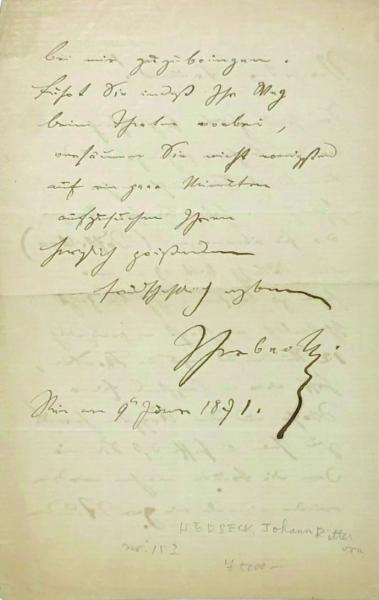 bei mir zuzubringen.
Führt Sie indeß Ihr Weg
beim Theater vorbei,
versäumen Sie nicht wenigstens
auf ein paar Minuten
aufzusuchen Ihren
herzlich grüßenden
freundschaftlich ergebenen
Herbeck
Wien am 9t Jänner 1871.
HERBECK, Johann Ritter
von
no. 152